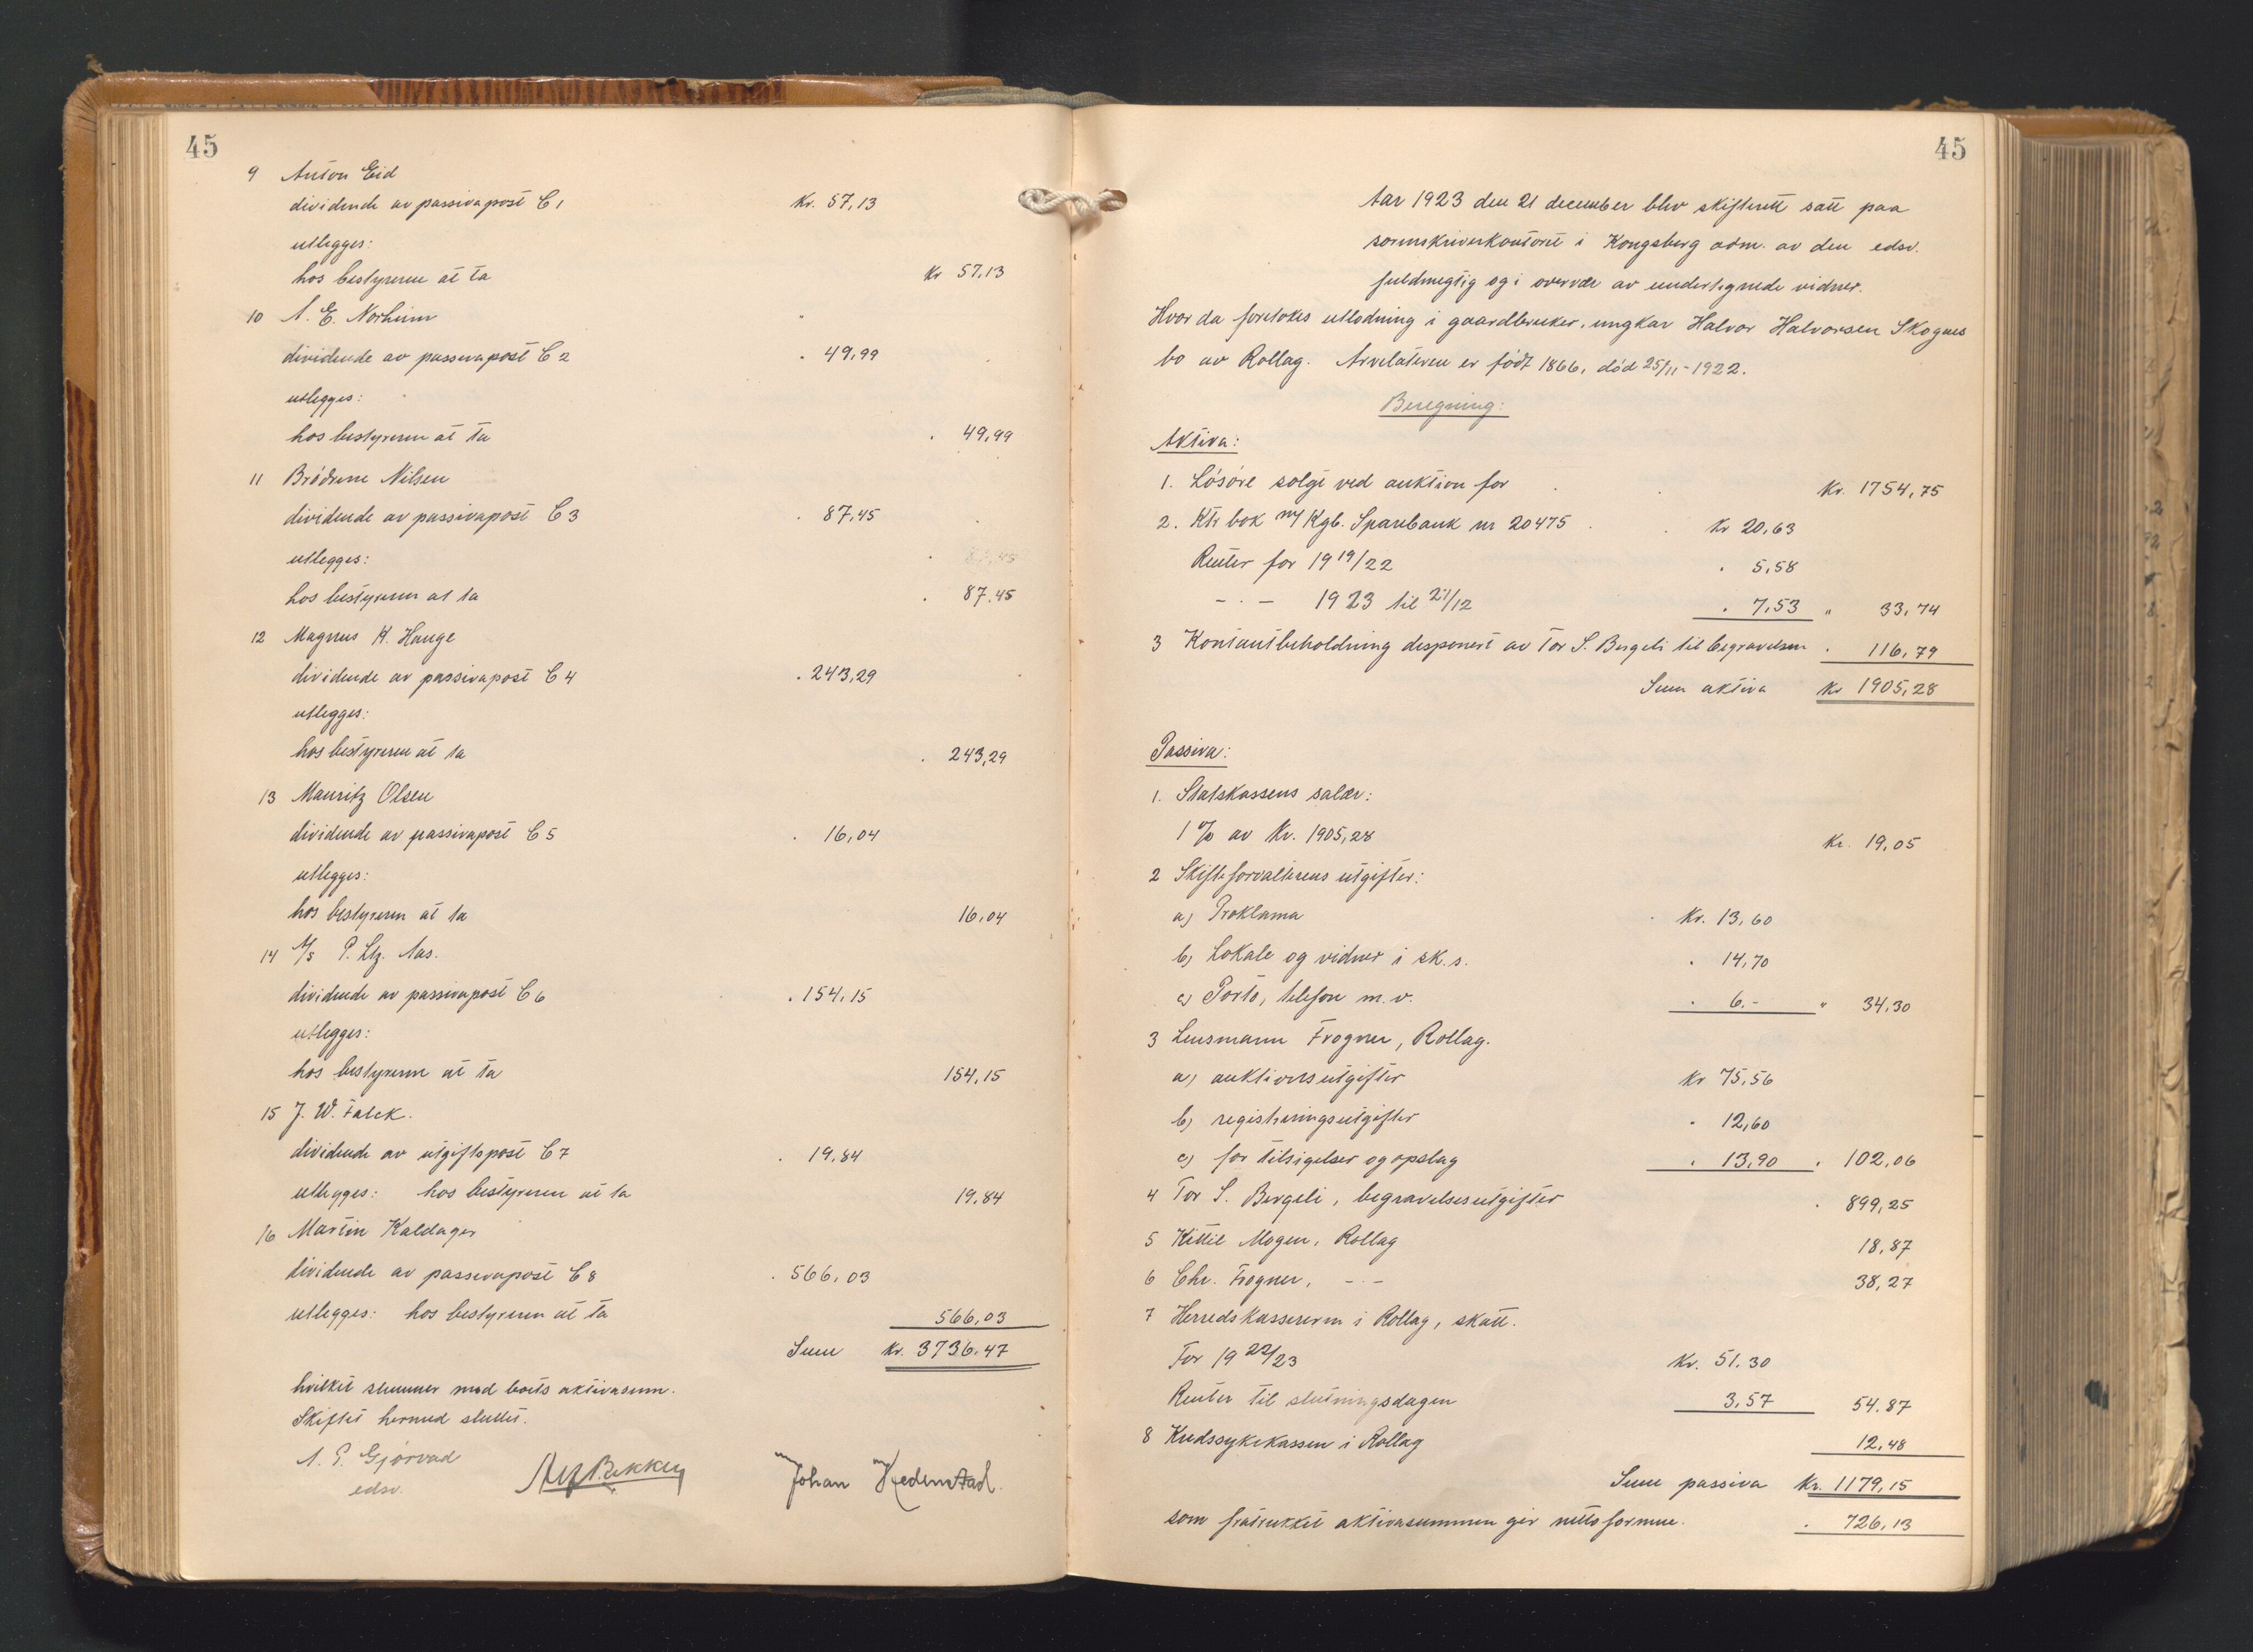 45
9 Anton Eid
dividende av passivapost C 1 Kr. 57,13
utlegges:
hos bestyreren at ta Kr 57,13
10 A. E. Norheim
dividende av passivapost C 2 . 49,99
utlegges:
hos bestyreren at ta . 49,99
11 Brödrene Nilsen
dividende av passivapost C 3 . 87,45
utlegges: . 87,45
hos bestyreren at ta . 87,45
12 Magnus K. Hauge
dividende av passivapost C 4 . 243,29
utlegges:
hos bestyreren at ta . 243,29
13 Mauritz Olsen
dividende av passivapost C 5 . 16,04
utlegges:
hos bestyreren at ta 16,04
14 A/s P. Ltz. Aas.
dividende av passivapost C 6 . 154,15
utlegges:
hos bestyreren at ta 154,15
15 J. W. Falck.
dividende av utgiftspost C 7 . 19,84
utlegges: hos bestyreren at ta 19,84
16 Martin Kaldager
dividende av passivapost C 8 . 566,03
utlegges: hos bestyreren at ta 566,03
Sum Kr. 3736.47
hvilket stemmer med boets aktivasum.
Skiftet hermed sluttet.
A. P. Gjörvad Alf Bekken Johan Hedenstad.
edsv.
45
Aar 1923 den 21 december blev skifterett satt paa
sorenskriverkontoret i Kongsberg adm. av den edsv.
fuldmegtig og i overvær av undertegnede vidner.
Hvor da foretokes utlodning i gaardbruker, ungkar Halvor Halvorsen Skognes
bo av Rollag. Arvelateren er född 1866, död 25/11-1922.
Beregning:
Aktiva:
1. Lösöre solgt ved auktion for Kr. 1754,75
2. Ktr bok m/ Kgb. Sparebank nr 20475 Kr 20,63
Renter for 1919/22 . 5,58
- . - 1923 til 21/12 . 7,53 " 33,74
3 Kontantbeholdning desponert av Tor S. Bergeli til begravelsen . 116,79
Sum aktiva Kr 1905,28
Passiva:
1. Statskassens salær:
1 % av Kr. 1905,28 Kr. 19,05
2 Skifteforvalterens utgifter:
a) Proklama Kr. 13,60
b) Lokale og vidner i sk. s. . 14,70
c) Porto, telefon m. v. . 6.- " 34,30
3 Lensmann Frogner, Rollag.
a) auktionsutgifter Kr 75,56
b) registreringsutgifter . 12,60
c) for tilsigelser og opslag . 13,90 . 102,06
4 Tor S. Bergeli, begravelsesutgifter . 899,25
5 Kittil Mogen, Rollag 18,87
6 Chr. Frogner, - . - 38,27
7 Herredskassereren i Rollag, skatt.
For 1922/23 Kr. 51.30
Renter til slutningsdagen 3,57 54.87
8 Kredssykekassen i Rollag 12,48
Sum passiva Kr. 1179,15
som fratrukket aktivasummen gir nettoformue. . 726,13